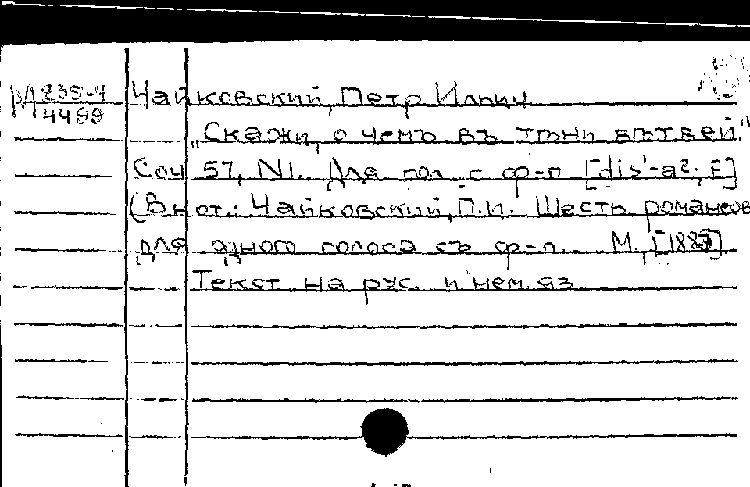 М 235-4 Чайковский, Петр Ильич
4489
„Скажи, о чемъ въ тѣни вѣтвей."
Соч 57, N1. Для гол. с ф-п [dis'-a²; E]
(В нот.: Чайковский, П.И. Шесть романсов
для одного голоса съ ф-п. М., [188
Текст на рус. и нем. яз